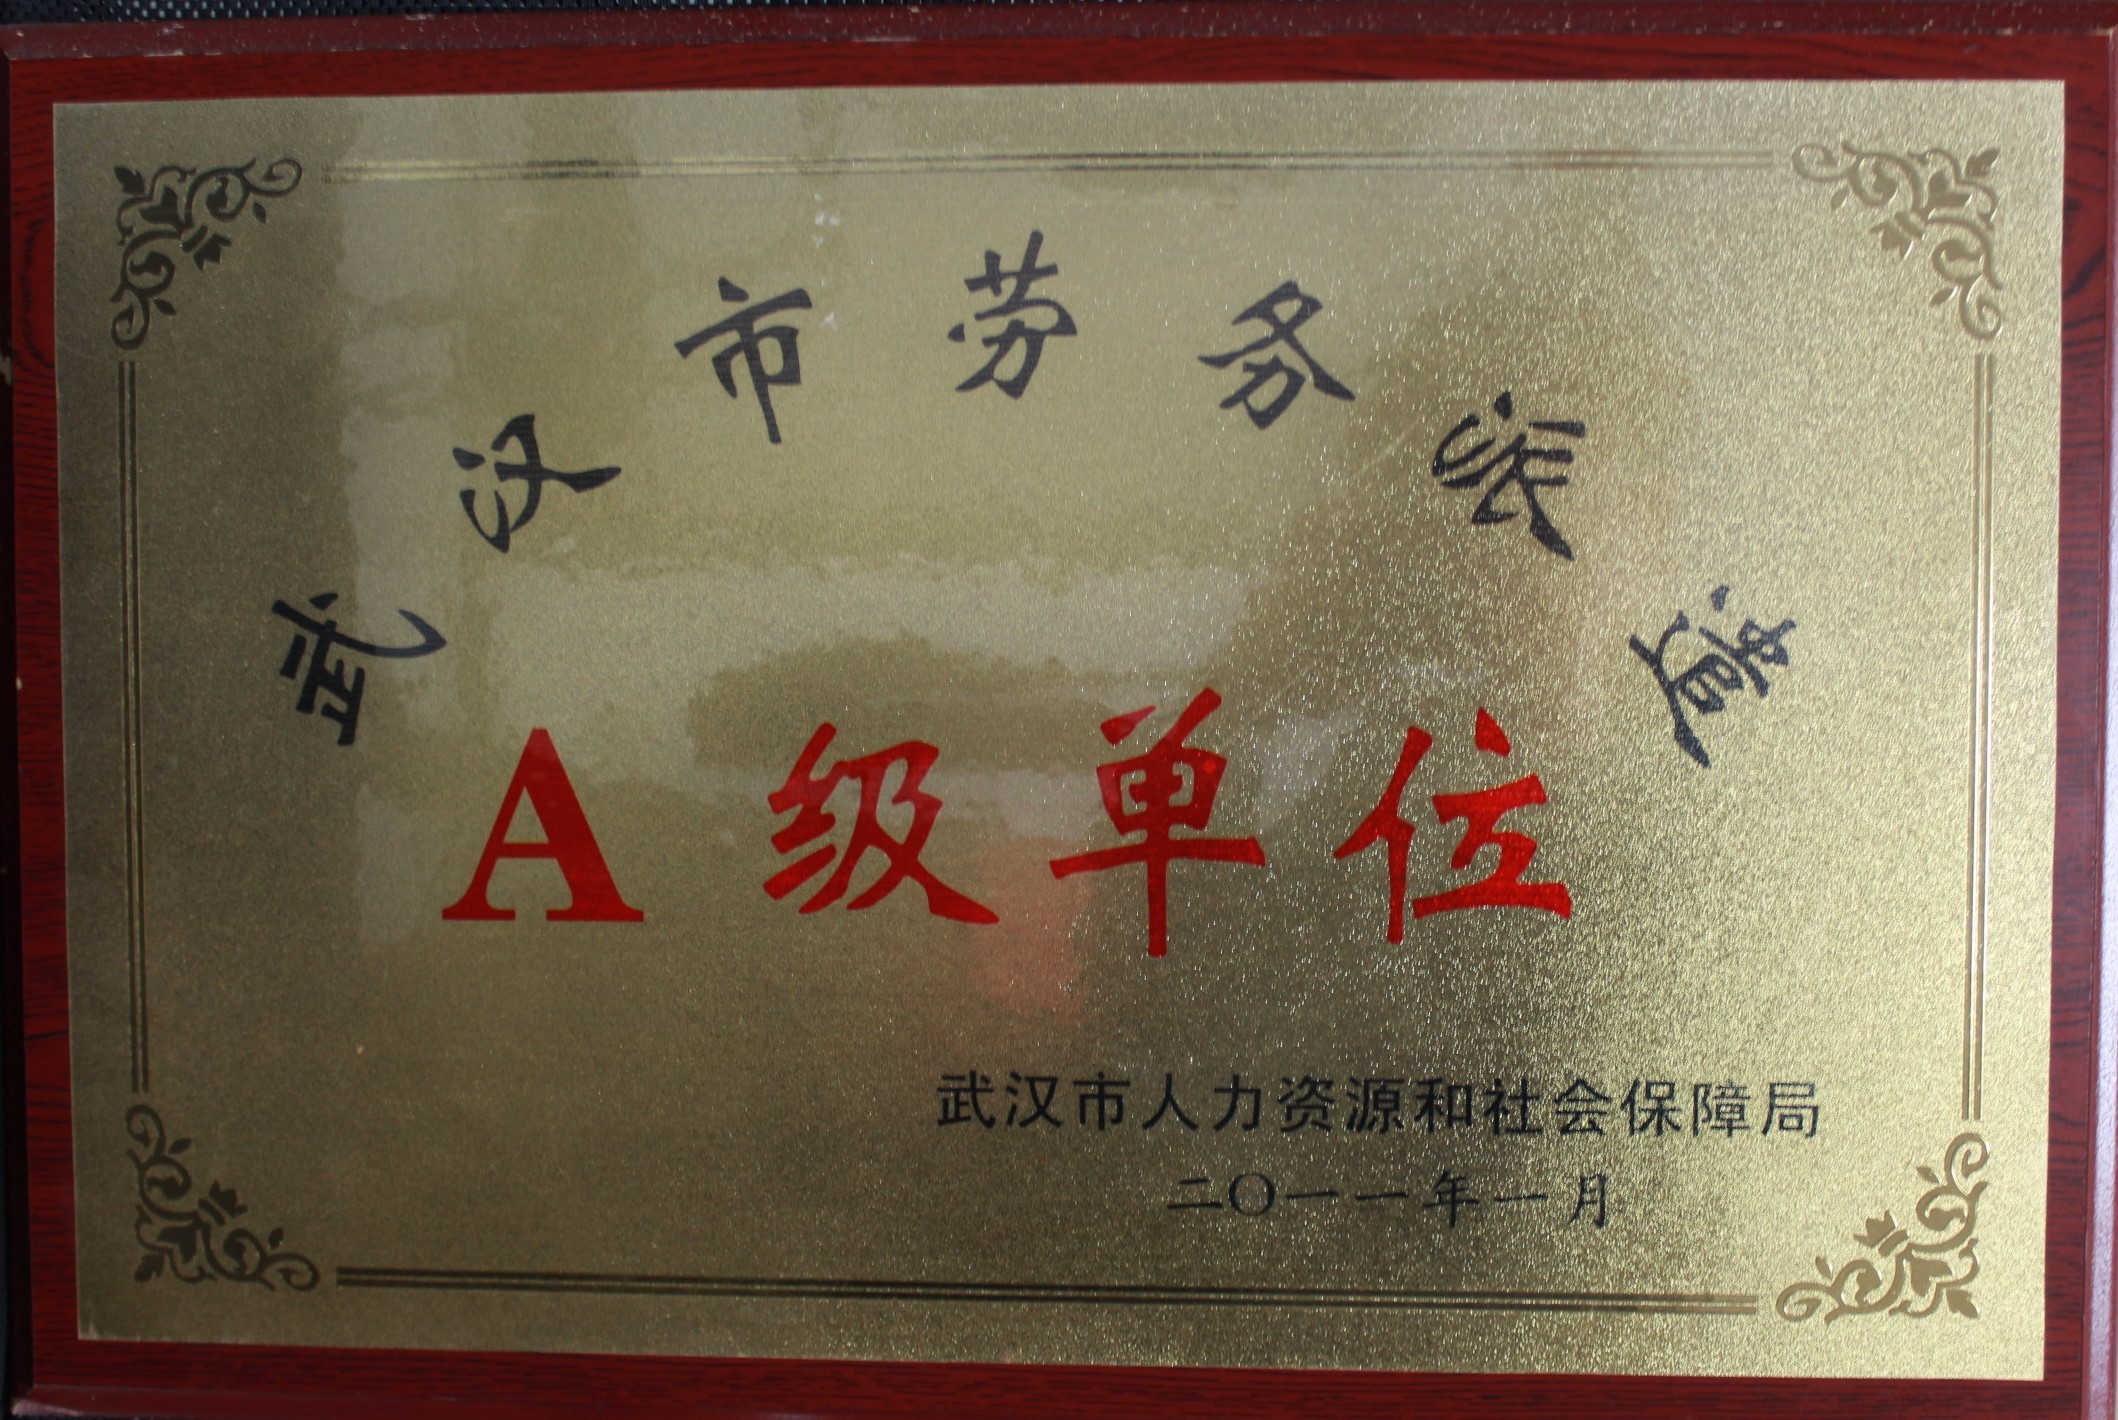 武汉市劳务派遣
A级单位
武汉市人力资源和社会保障局
二〇一一年一月